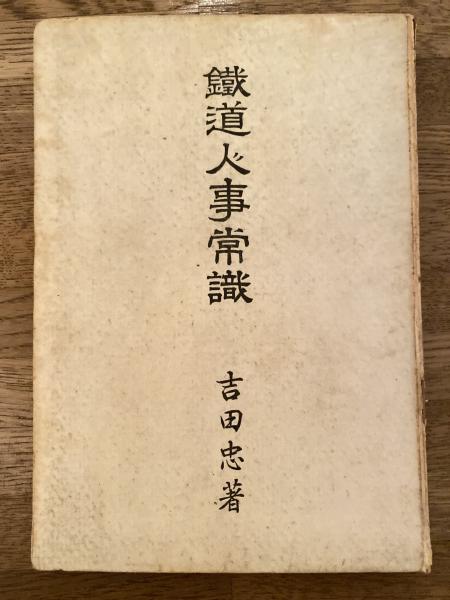 鐵道人事常識
吉田忠著